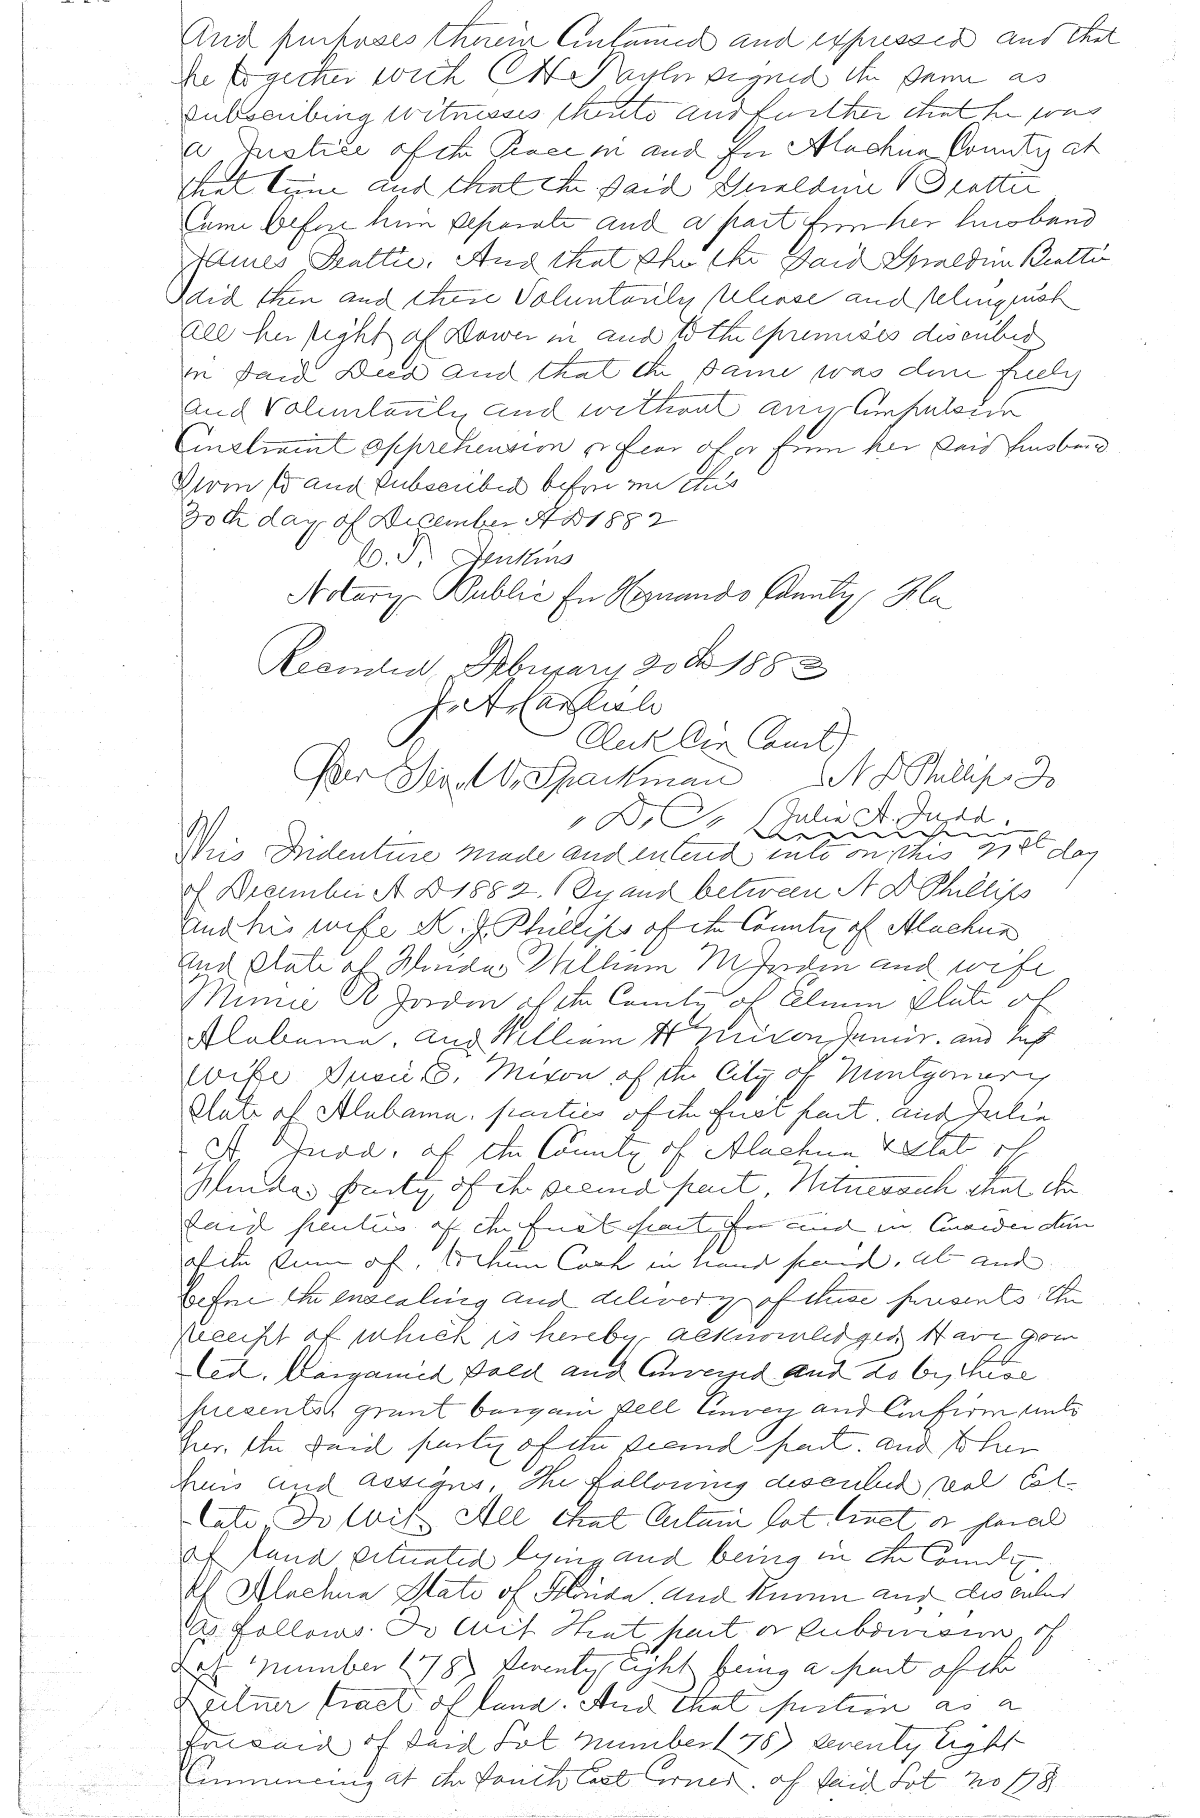 And purposes therein Contained and expressed and that
he together with C H Taylor signed the same as
subscribing witnesses thereto and further that he was
a Justice of the Peace in and for Alachua County at
that time and that the said Geraldine Beattie
Came before him separate and a part from her husband
James Beattie. And that she the said Geraldine Beattie
did then and there Voluntarily release and relinquish
all her right of Dower in and to the premises discribed
in said Deed and that the same was done freely
and Voluntarily and without any Compulsion
Constraint apprehension or fear of or from her said husband
Sworn to and subscribed before me this
30th day of December A D 1882
Jenkins
Notary Public for Hernando County Fla
Recorded February 20th 1883
J. A. Carlisle
Clerk Cir Court
Per Geo. W. Sparkman A D Phillips To
" D. C. " Julia A. Judd.
This Indenture made and entered into on this 21st day
of December A D 1882. By and between A D Phillips
and his wife K. J. Phillips of the County of Alachua
and State of Florida William M Jordon and wife
Mimie R Jordon of the County of Elmore State of
Alabama. and William H Mixon Junior. and his
wife Susie E. Mixon of the City of Montgomery
State of Alabama. parties of the first part. and Julia
A Judd. of the County of Alachua & State of
Florida party of the second part. Witnesseth that the
said parties of the first part for and in Consideration
of the sum of. to them Cash in hand paid. at and
before the ensealing and delivery of these presents the
receipt of which is hereby acknowledged Have gran
ted. Bargained sold and Conveyed and do by these
presents grant bargain sell Convey and Confirm unto
her. the said party of the second part. and to her
heirs and assigns. The following described real Est-
tate. To Wit All that Certain lot tract or parcel
of land situated lying and being in the County
of Alachua State of Florida. and known and discribed
as follows. To Wit That part or subdivision of
Lot Number (78) seventy Eight being a part of the
Leitner tract of land. And that portion as a
foresaid of said Lot Number (78) seventy Eight
Commencing at the South East Corner. of said Lot No 78